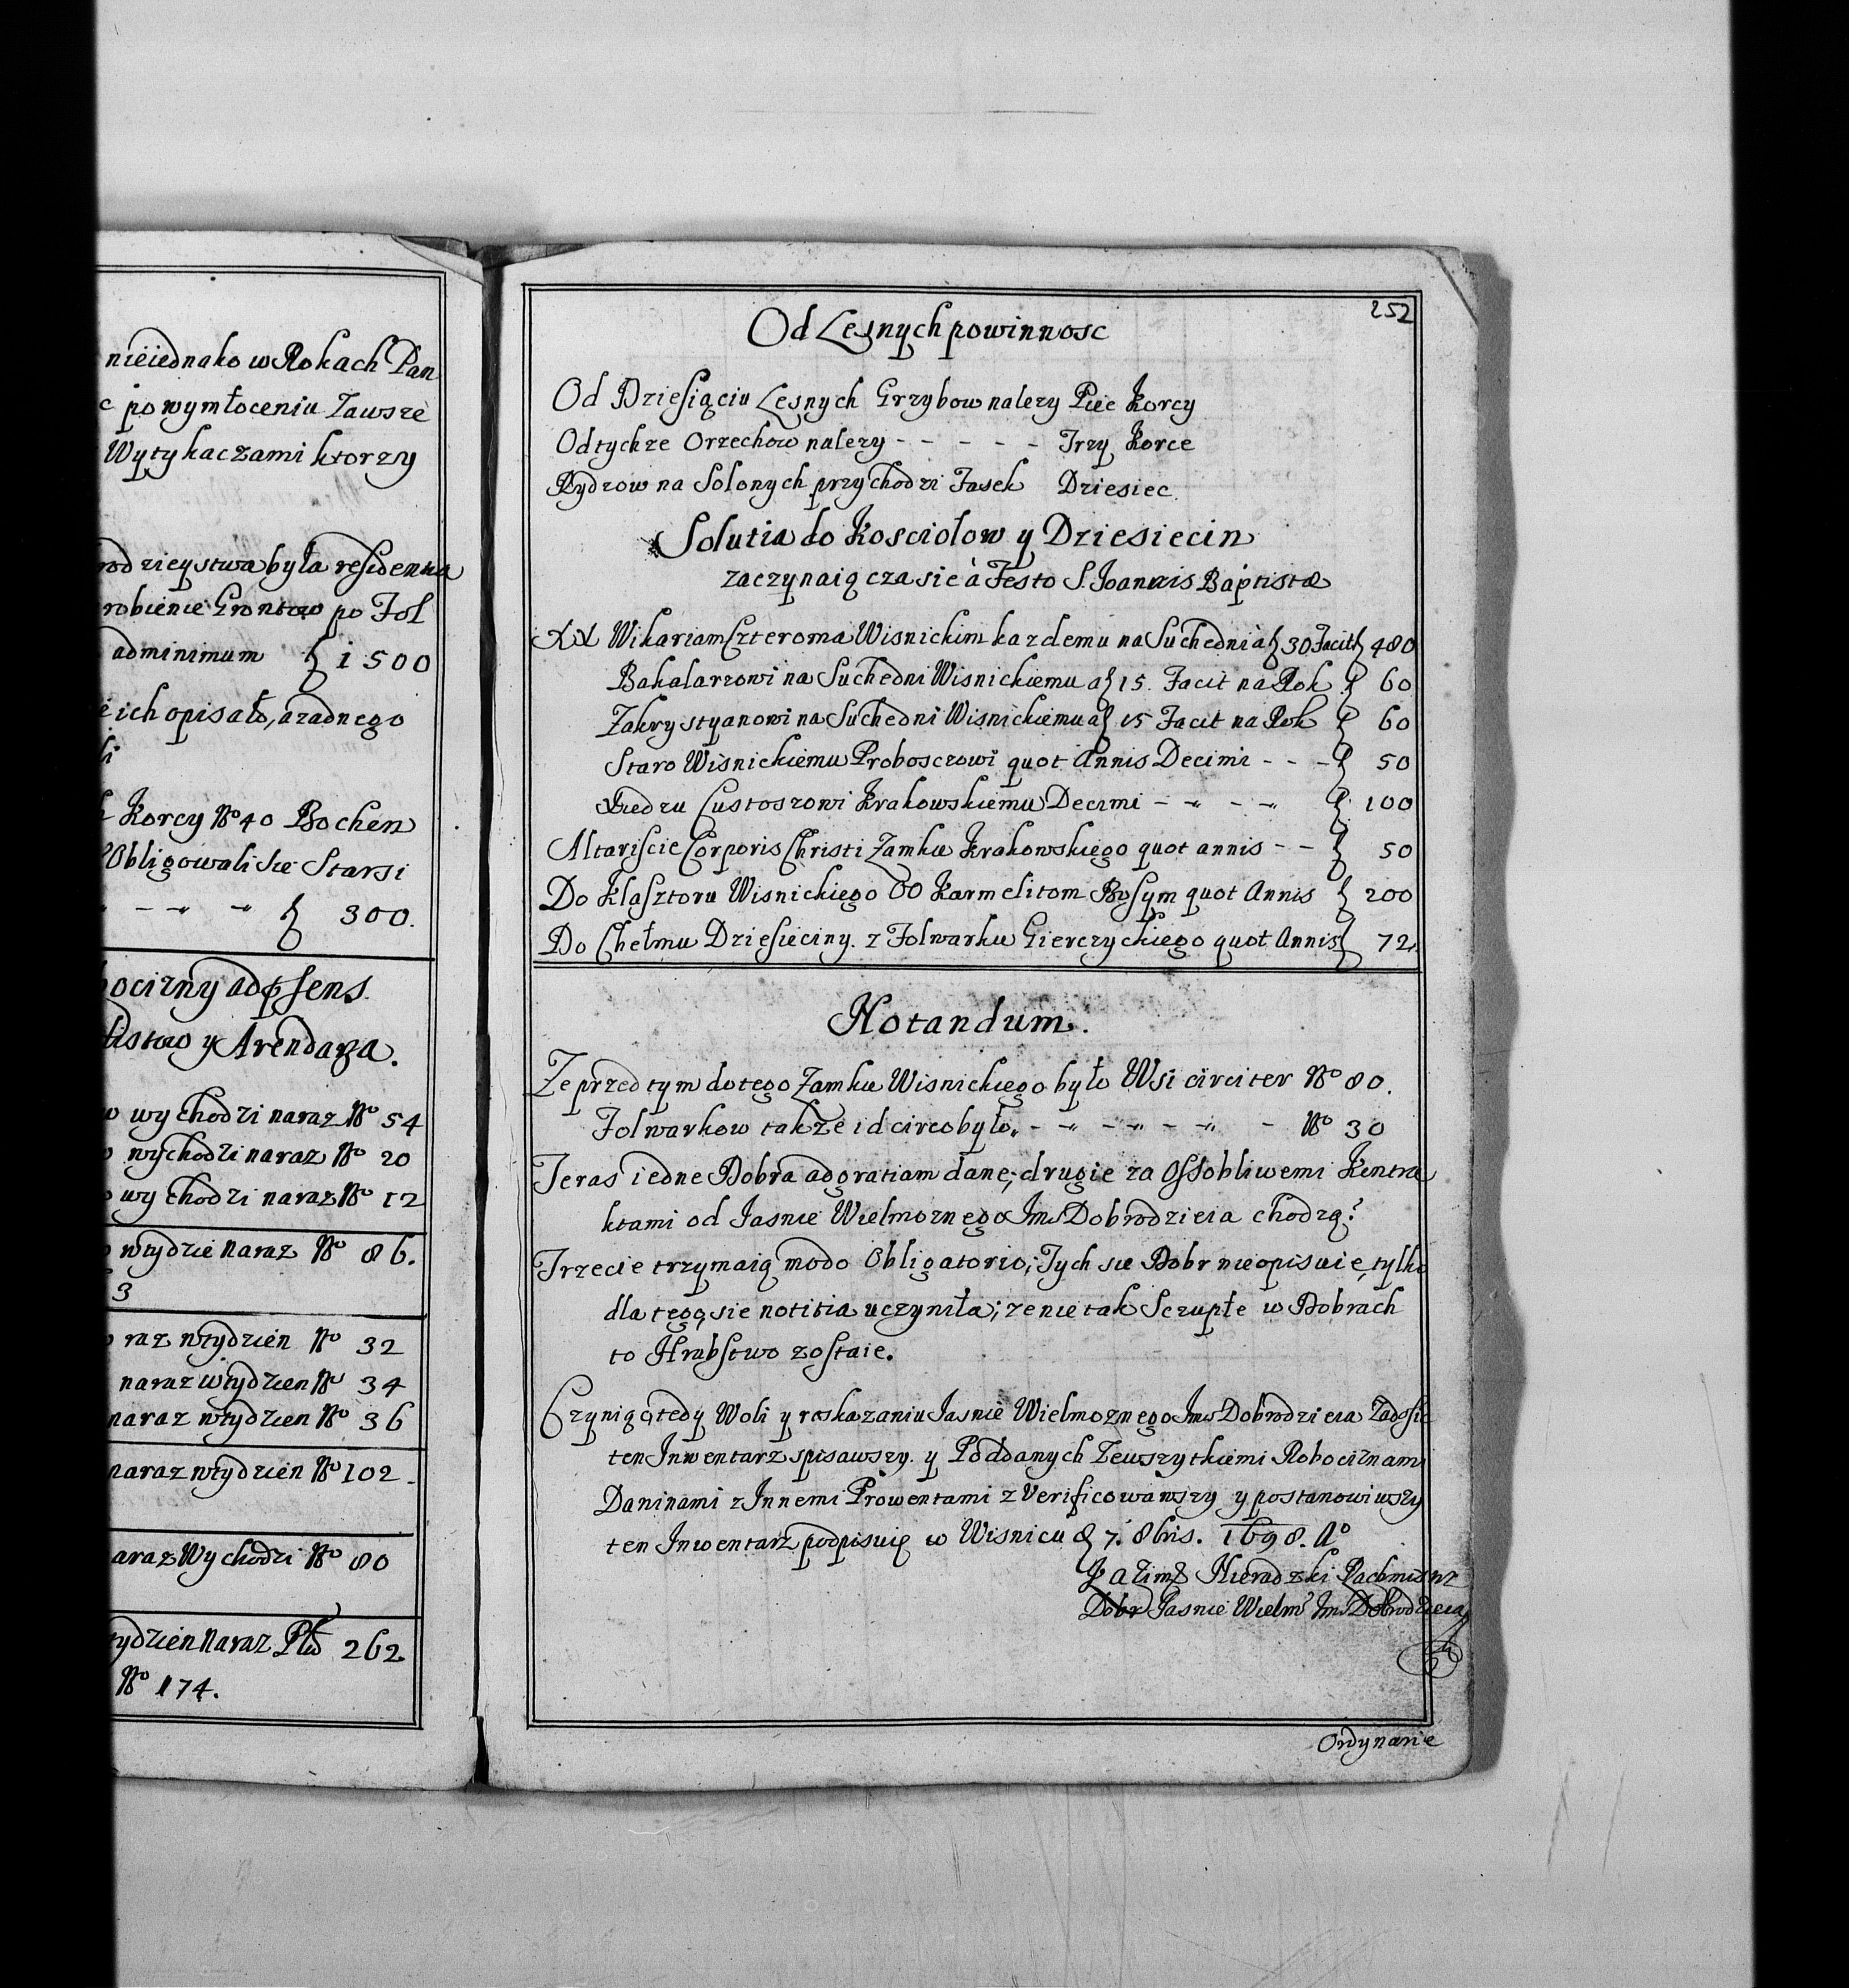 nieiednako w Rokach Pan
c po wymłoceniu Zawsze
Wytykaczami ktorzy
rodzieystwa była residentia
robienie Grontow po Fol
adminimum } 1500
e ich opisało, azadnego
li
k Korcy No 40 Bochen
Obligowali sie Starsi
- - - - } 300.
bocizny ad psens.
listwo y Arendarza.
o wychodzi naraz No 54
o wychodzi naraz No 20
o wychodzi naraz No 12
o wtydzie naraz No 86.
3
o raz wtydzien No 32
naraz wtydzien No 34
naraz wtydzien No 36
naraz wtydzien No 102.
araz Wychodzi No 80
tydzien naraz 262.
No 174.
252
Od Lesnych powinnosc
Od Dziesiąciu Lesnych Grzybow nalezy Piec Korcy
Odtychze Orzechow nalezy - - - - - Trzy Korce
Rydzow na Solonych przychodzi Fasek Dziesiec.
Solutia do Kosciolow y Dziesiecin
zaczynaią czasie à Festo S. Joannis Baptistæ
XX Wikariam Czteroma Wisnickim kazdemu na Suchedni à } 30 Facit } 480
Bakalarzowi na Suchedni Wisnickiemu a } 15. Facit na Rok } 60
Zakrystyanowi na Suchedni Wisnickiemu a } 15 Facit na Rok } 60
Staro Wisnickiemu Proboszczowi quot Annis Decimi - - - } 50
Xiedzu Custoszowi Krakowskiemu Decimi - - - - } 100
Altariscie Corporis Christi Zamku Krakowskiego quot annis - - } 50
Do Klasztoru Wisnickiego OO Karmelitom Bosym quot Annis } 200
Do Chełmu Dziesieciny. z Folwarku Gierczyckiego quot Annis } 72.
Notandum.
Ze przed tym do tego Zamku Wisnickiego było Wsi circiter No 80.
Folwarkow takze id circo było. - - - - - - - No 30
Teras iedne Dobra ad gratiam dane, drugie za Ossobliwemi Kontra
ktami od Jasnie Wielmoznego Jms Dobrodzieia chodzą:
Trzecie trzymaią modo Obligatorio; Tych sie Dobr nieopisuie, tylko
dla tego, sie notitia uczyniła; ze nie tak Sczupłe w Dobrach
to Hrabstwo zostaie.
Czyniąc tedy Woli y roskazaniu Jasnie Wielmoznego Jms Dobrodzieia Zadosic
ten Inwentarz spisawszy. y Poddanych Zewszytkiemi Robociznami
Daninami z Innemi Prowentami z Verificowawszy y postanowiwszy
ten Inwentarz podpisuię w Wisnicu d 7. 8bris. 1698. Ao
Kazim Nieradzki Rachmistrz
Dobr Jasnie Wielmo Jms Dobrodzieia
Ordynarie